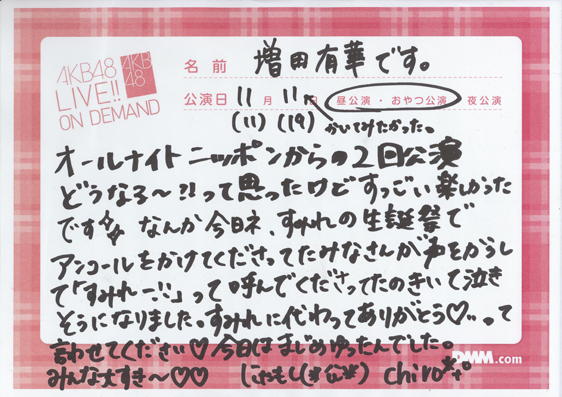 AKB48
LIVE!!
ON DEMAND
AKB
48
名前 増田有華です。
公演日 11月11日 昼公演・おやつ公演 夜公演
(11) (19) かいてみたかった。
オールナイトニッポンからの2回公演
どうなる〜?!って思ったけどすっごい楽しかった
です なんか今日ネ、すみれの生誕祭で
アンコールをかけてくださってたみなさんが声をからし
て「すみれー!!」って呼んでくださってたのきいて泣き
そうになりました。すみれに代わってありがとう♡って
言わせてください♡今日はまじめゆったんでした。
みんな大すき〜♡♡ chiro
DMM.com